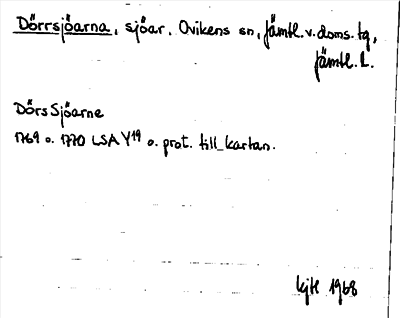 Dörrsjöarna, sjöar. Ovikens sn, Jämtl. v. doms. tg,
Jämtl. L.
Dörs Sjöarne
1769 o. 1770 LSA Y19 o. prot. till kartan.
kjte 1968